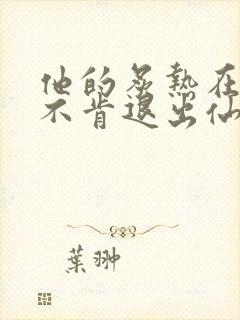 他的炙热在
不肯退出仙
葉翀